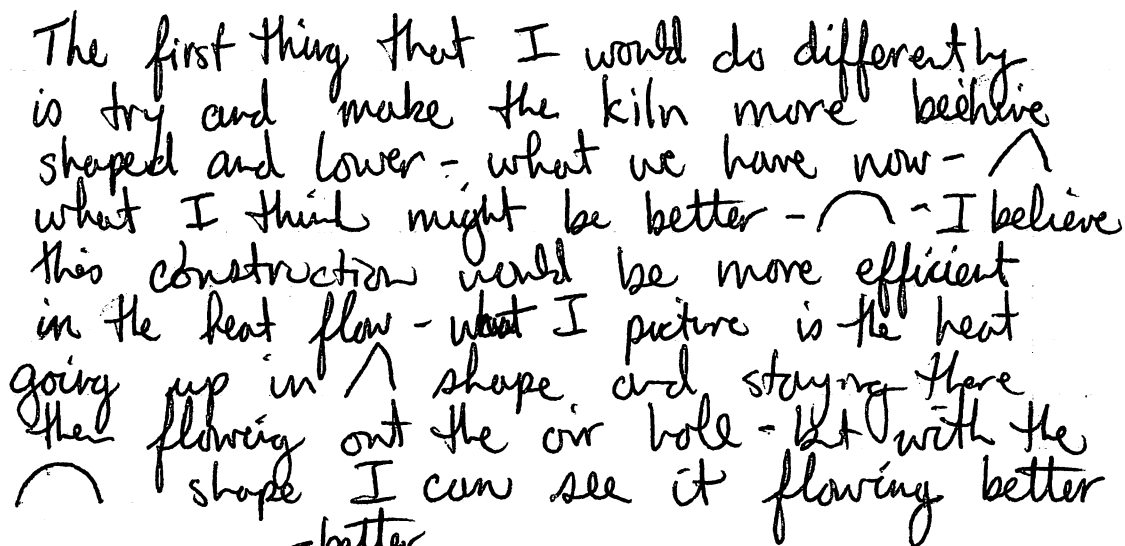 The first thing that I would do differently
is try and make the kiln more beehive
shaped and lower - what we have now - ∧
what I think might be better - ⌒ - I believe
this construction would be more efficient
in the heat flow - what I picture is the heat
going up in ∧ shape and staying there
then flowing out the air hole - but with the
⌒ shape I can see it flowing better
- better